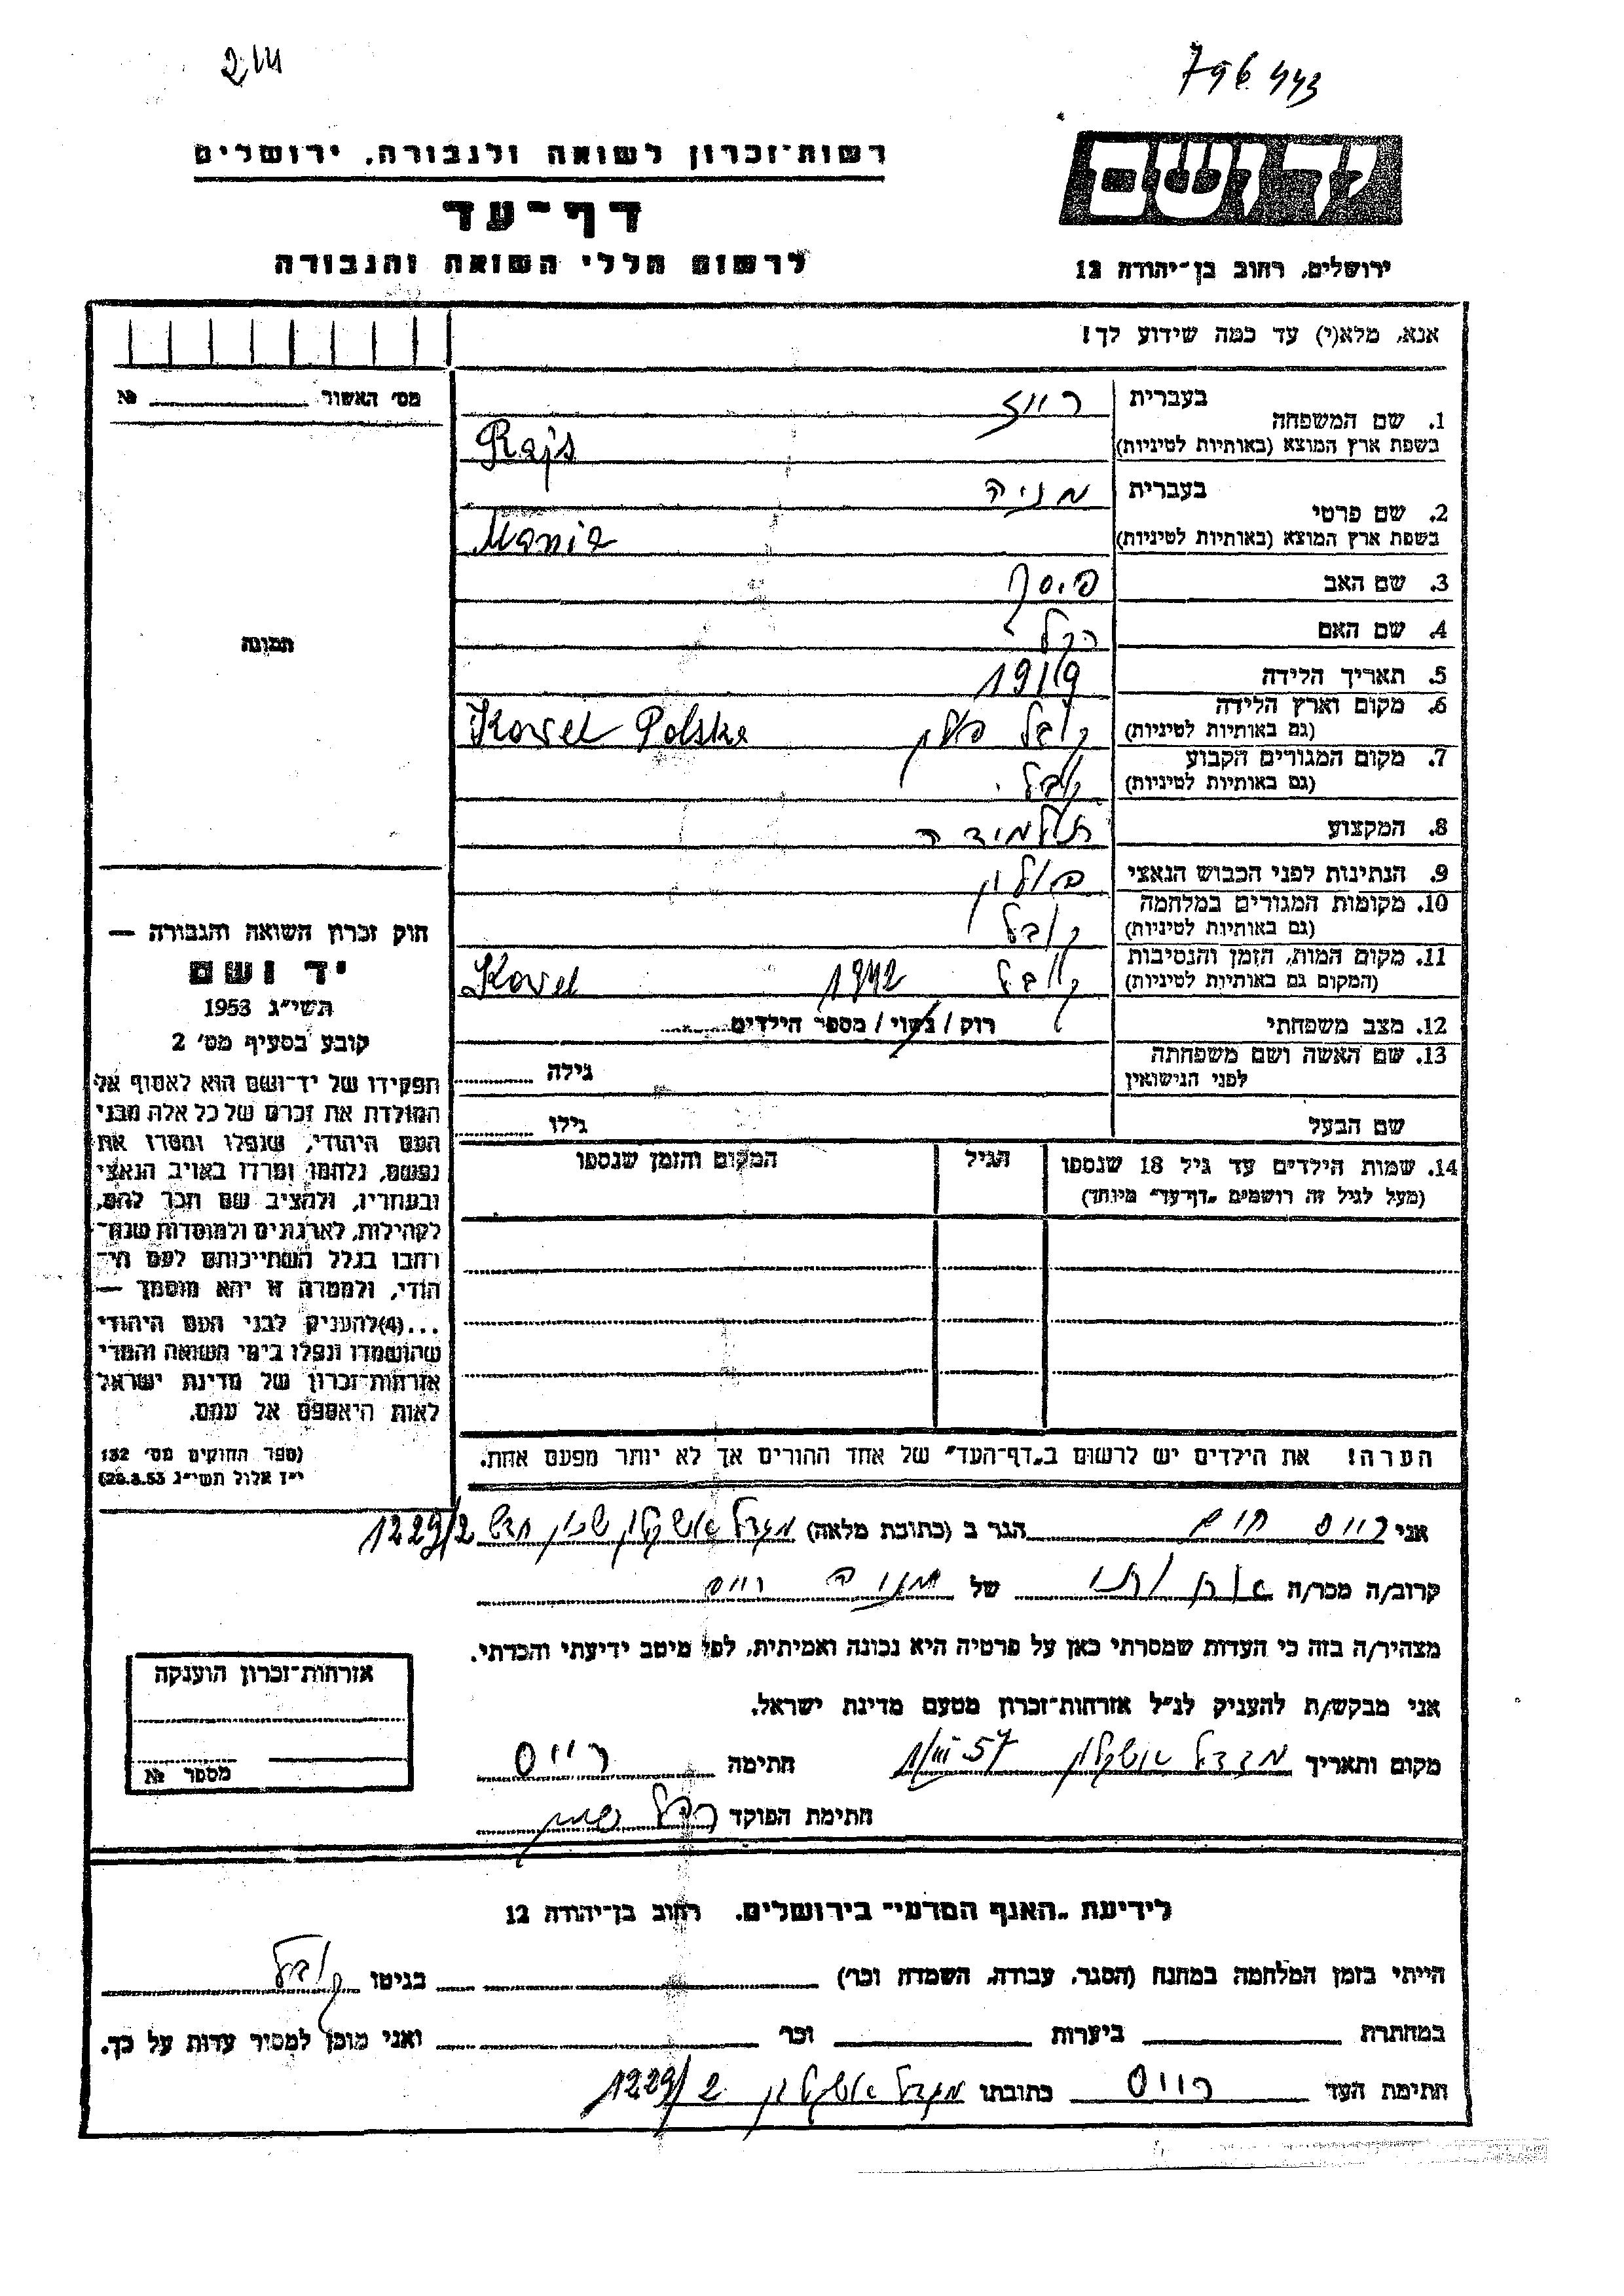 214
796443
רשות־זכרון לשואה ולגבורה, ירושלים
דף־עד
לרשום חללי השואה והגבורה
יד ושם
ירושלים, רחוב בן־יהודה 12
אנא, מלא(י) עד כמה שידוע לך!
מס׳ האשור №
1. שם המשפחה בעברית רייז
בשפת ארץ המוצא (באותיות לטיניות) Rajs
2. שם פרטי בעברית מניה
בשפת ארץ המוצא (באותיות לטיניות) Mania
3. שם האב
4. שם האם רחל
5. תאריך הלידה 1919
6. מקום וארץ הלידה (גם באותיות לטיניות) קובל פולין Kowel Polska
7. מקום המגורים הקבוע (גם באותיות לטיניות) קובל
8. המקצוע תלמידה
9. הנתינות לפני הכבוש הנאצי פולין
10. מקומות המגורים במלחמה (גם באותיות לטיניות) קובל
11. מקום המות, הזמן והנסיבות (המקום גם באותיות לטיניות) קובל 1942 Kowel
12. מצב משפחתי רוק / נשוי / מספר הילדים
13. שם האשה ושם משפחתה לפני הנישואין גילה
שם הבעל גילו
14. שמות הילדים עד גיל 18 שנספו הגיל המקום והזמן שנספו
(מעל לגיל זה רושמים „דף־עד” מיוחד)
תמונה
חוק זכרון השואה והגבורה —
יד ושם
תשי״ג 1953
קובע בסעיף מס׳ 2
תפקידו של יד־ושם הוא לאסוף אל
המולדת את זכרם של כל אלה מבני
העם היהודי, שנפלו ומסרו את
נפשם, נלחמו ומרדו באויב הנאצי
ובעוזריו, ולהציב שם וזכר להם,
לקהילות, לארגונים ולמוסדות שנח־
רבו בגלל השתייכותם לעם הי־
הודי, ולמטרה זו יהא מוסמך —
...(4)להעניק לבני העם היהודי
שהושמדו ונפלו בימי השואה והמרי
אזרחות־זכרון של מדינת ישראל
לאות היאספם אל עמם.
(ספר החוקים מס׳ 132
י״ז אלול תשי״ג 28.8.53)
הערה! את הילדים יש לרשום ב„דף־העד” של אחד ההורים אך לא יותר מפעם אחת.
אני רייס חיים הגר ב (כתובת מלאה) מגדל אשקלון שכון חדש 1229/2
קרוב/ה מכר/ה אחותי של מניה רייס
מצהיר/ה בזה כי העדות שמסרתי כאן על פרטיה היא נכונה ואמיתית, לפי מיטב ידיעתי והכרתי.
אני מבקש/ת להעניק לנ״ל אזרחות־זכרון מטעם מדינת ישראל.
מקום ותאריך מגדל אשקלון חתימה רייס
חתימת הפוקד רחל
אזרחות־זכרון הוענקה
מספר №
לידיעת „האגף המדעי” בירושלים, רחוב בן־יהודה 12
הייתי בזמן המלחמה במחנה (הסגר, עבודה, השמדה וכר׳) בגיטו קובל
במחתרת ביערות וכר׳ ואני מוכן למסיר עדות על כך.
חתימת העד רייס כתובתו מגדל אשקלון 1229/2